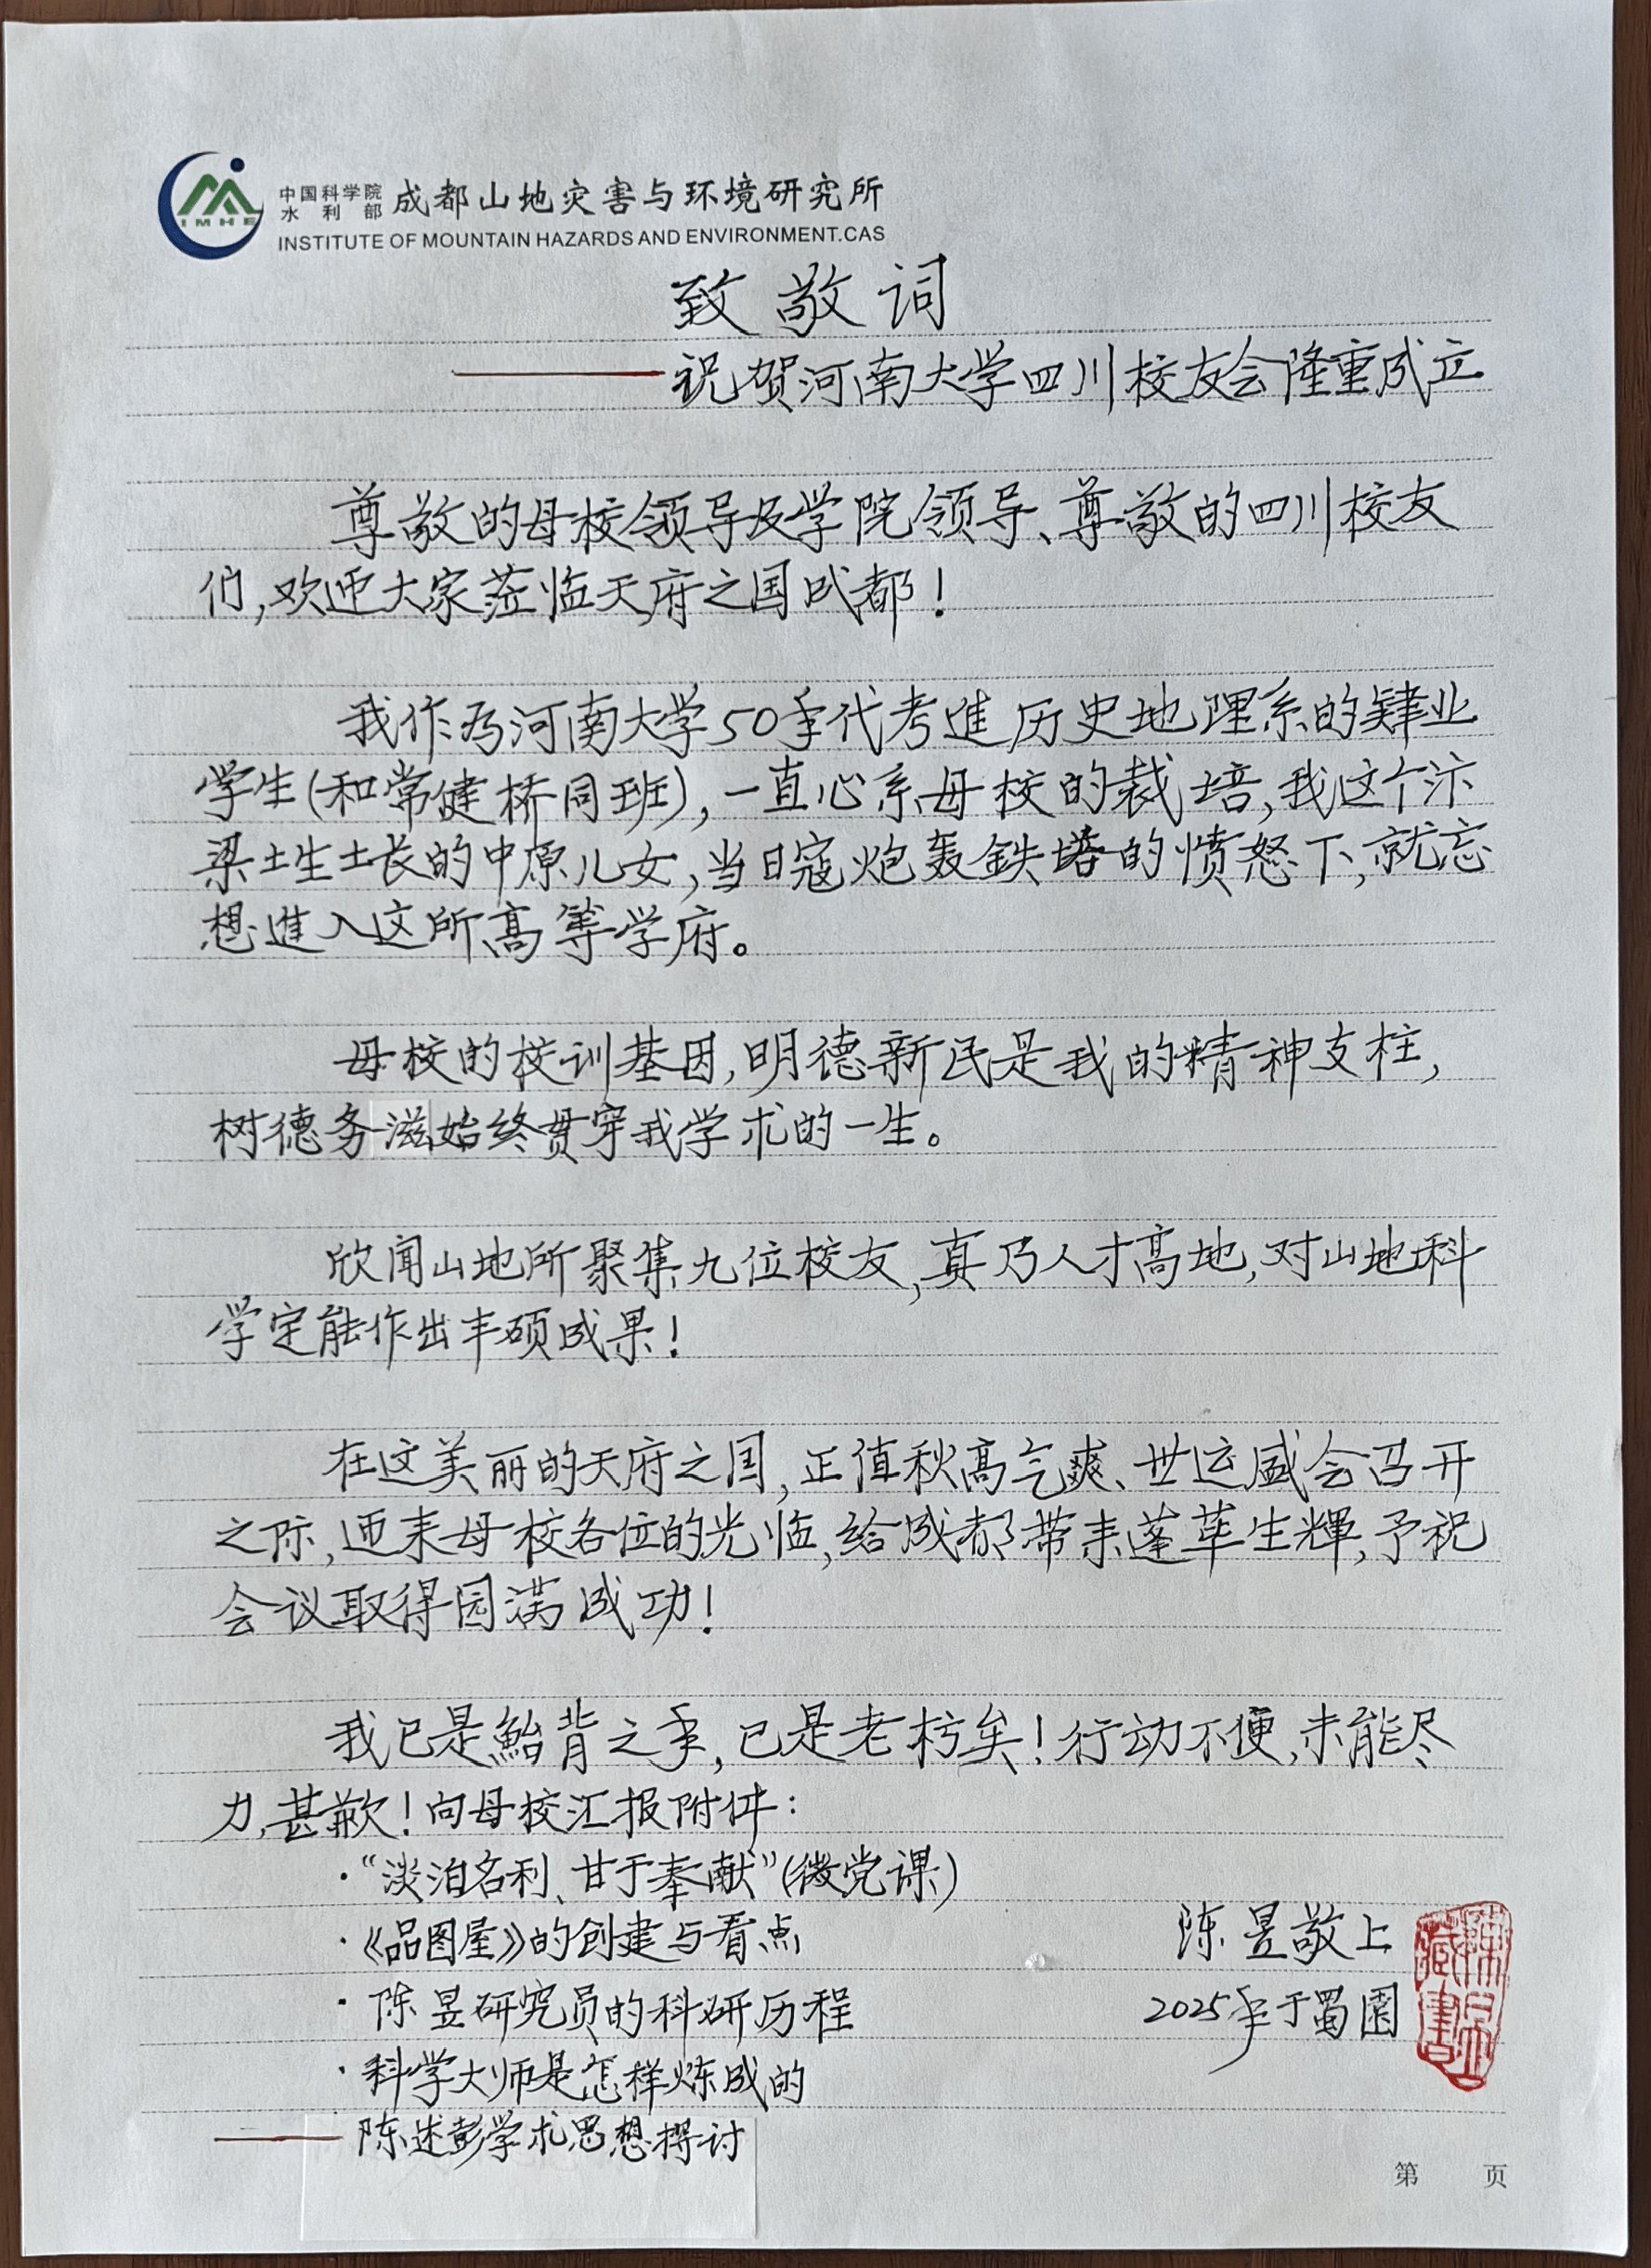 中国科学院
水利部
成都山地灾害与环境研究所
IMHE
INSTITUTE OF MOUNTAIN HAZARDS AND ENVIRONMENT.CAS
致敬词
——祝贺河南大学四川校友会隆重成立
尊敬的母校领导及学院领导、尊敬的四川校友
们,欢迎大家莅临天府之国成都!
我作为河南大学50年代考進历史地理系的肄业
学生(和常健桥同班),一直心系母校的栽培,我这个汴
梁土生土长的中原儿女,当日寇炮轰鉄塔的愤怒下,就忘
想進入这所高等学府。
母校的校训基因,明德新民是我的精神支柱,
树德务滋始终贯穿我学术的一生。
欣闻山地所聚集九位校友,真乃人才高地,对山地科
学定能作出丰硕成果!
在这美丽的天府之国,正值秋高气爽、世运盛会召开
之际,迎来母校各位的光临,给成都带来蓬荜生輝,予祝
会议取得园满成功!
我已是鲐背之年,已是老朽矣!行动不便,未能尽
力,甚歉!向母校汇报附件:
·“淡泊名利、甘于奉献”(微党课)
·《品图屋》的创建与看点
·陈昱研究员的科研历程
·科学大师是怎样炼成的
——陈述彭学术思想探讨
陈昱敬上
2025年于蜀園
陳昱藏書
第 页